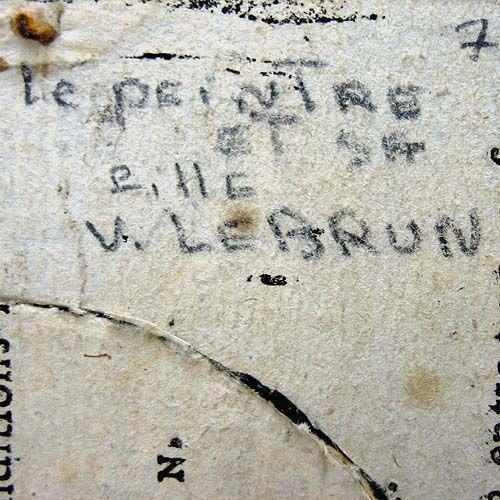 7
Le PEINTRE
ET SA
FILLE
V. LEBRUN
N.